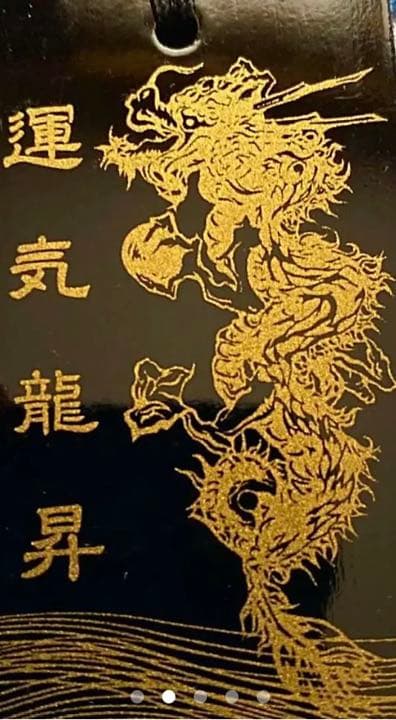 運気龍昇